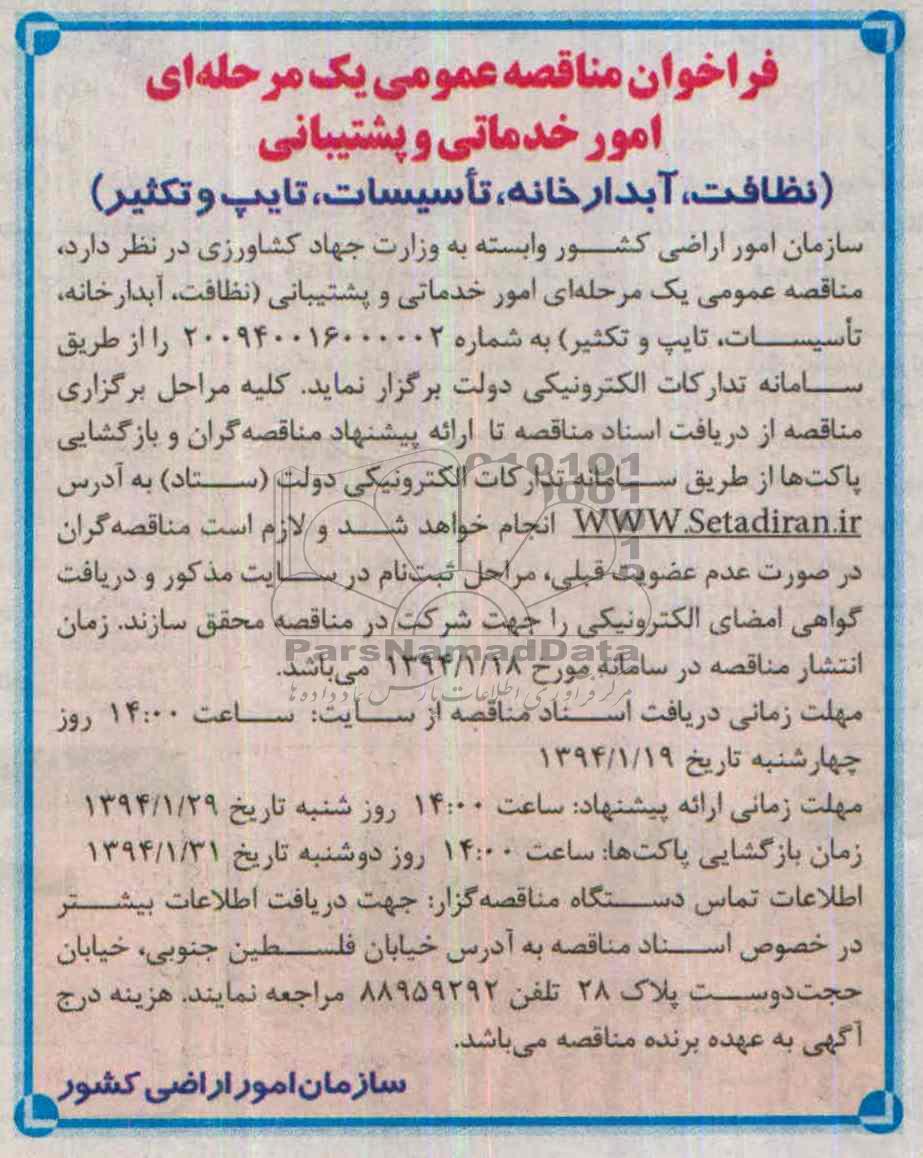 فراخوان مناقصه عمومی یک مرحله‌ای
امور خدماتی و پشتیبانی
(نظافت، آبدارخانه، تأسیسات، تایپ و تکثیر)
سازمان امور اراضی کشور وابسته به وزارت جهاد کشاورزی در نظر دارد،
مناقصه عمومی یک مرحله‌ای امور خدماتی و پشتیبانی (نظافت، آبدارخانه،
تأسیسات، تایپ و تکثیر) به شماره ۲۰۰۹۴۰۰۱۶۰۰۰۰۰۲ را از طریق
سامانه تدارکات الکترونیکی دولت برگزار نماید. کلیه مراحل برگزاری
مناقصه از دریافت اسناد مناقصه تا ارائه پیشنهاد مناقصه‌گران و بازگشایی
پاکت‌ها از طریق سامانه تدارکات الکترونیکی دولت (ستاد) به آدرس
WWW.Setadiran.ir انجام خواهد شد و لازم است مناقصه‌گران
در صورت عدم عضویت قبلی، مراحل ثبت‌نام در سایت مذکور و دریافت
گواهی امضای الکترونیکی را جهت شرکت در مناقصه محقق سازند. زمان
ParsNamadData
انتشار مناقصه در سامانه مورخ ۱۳۹۴/۱/۱۸ می‌باشد.
مرکز فرآوری اطلاعات پارس نماد داده ها
مهلت زمانی دریافت اسناد مناقصه از سایت: ساعت ۱۴:۰۰ روز
چهارشنبه تاریخ ۱۳۹۴/۱/۱۹
مهلت زمانی ارائه پیشنهاد: ساعت ۱۴:۰۰ روز شنبه تاریخ ۱۳۹۴/۱/۲۹
زمان بازگشایی پاکت‌ها: ساعت ۱۴:۰۰ روز دوشنبه تاریخ ۱۳۹۴/۱/۳۱
اطلاعات تماس دستگاه مناقصه‌گزار: جهت دریافت اطلاعات بیشتر
در خصوص اسناد مناقصه به آدرس خیابان فلسطین جنوبی، خیابان
حجت‌دوست پلاک ۲۸ تلفن ۸۸۹۵۹۲۹۲ مراجعه نمایند. هزینه درج
آگهی به عهده برنده مناقصه می‌باشد.
سازمان امور اراضی کشور